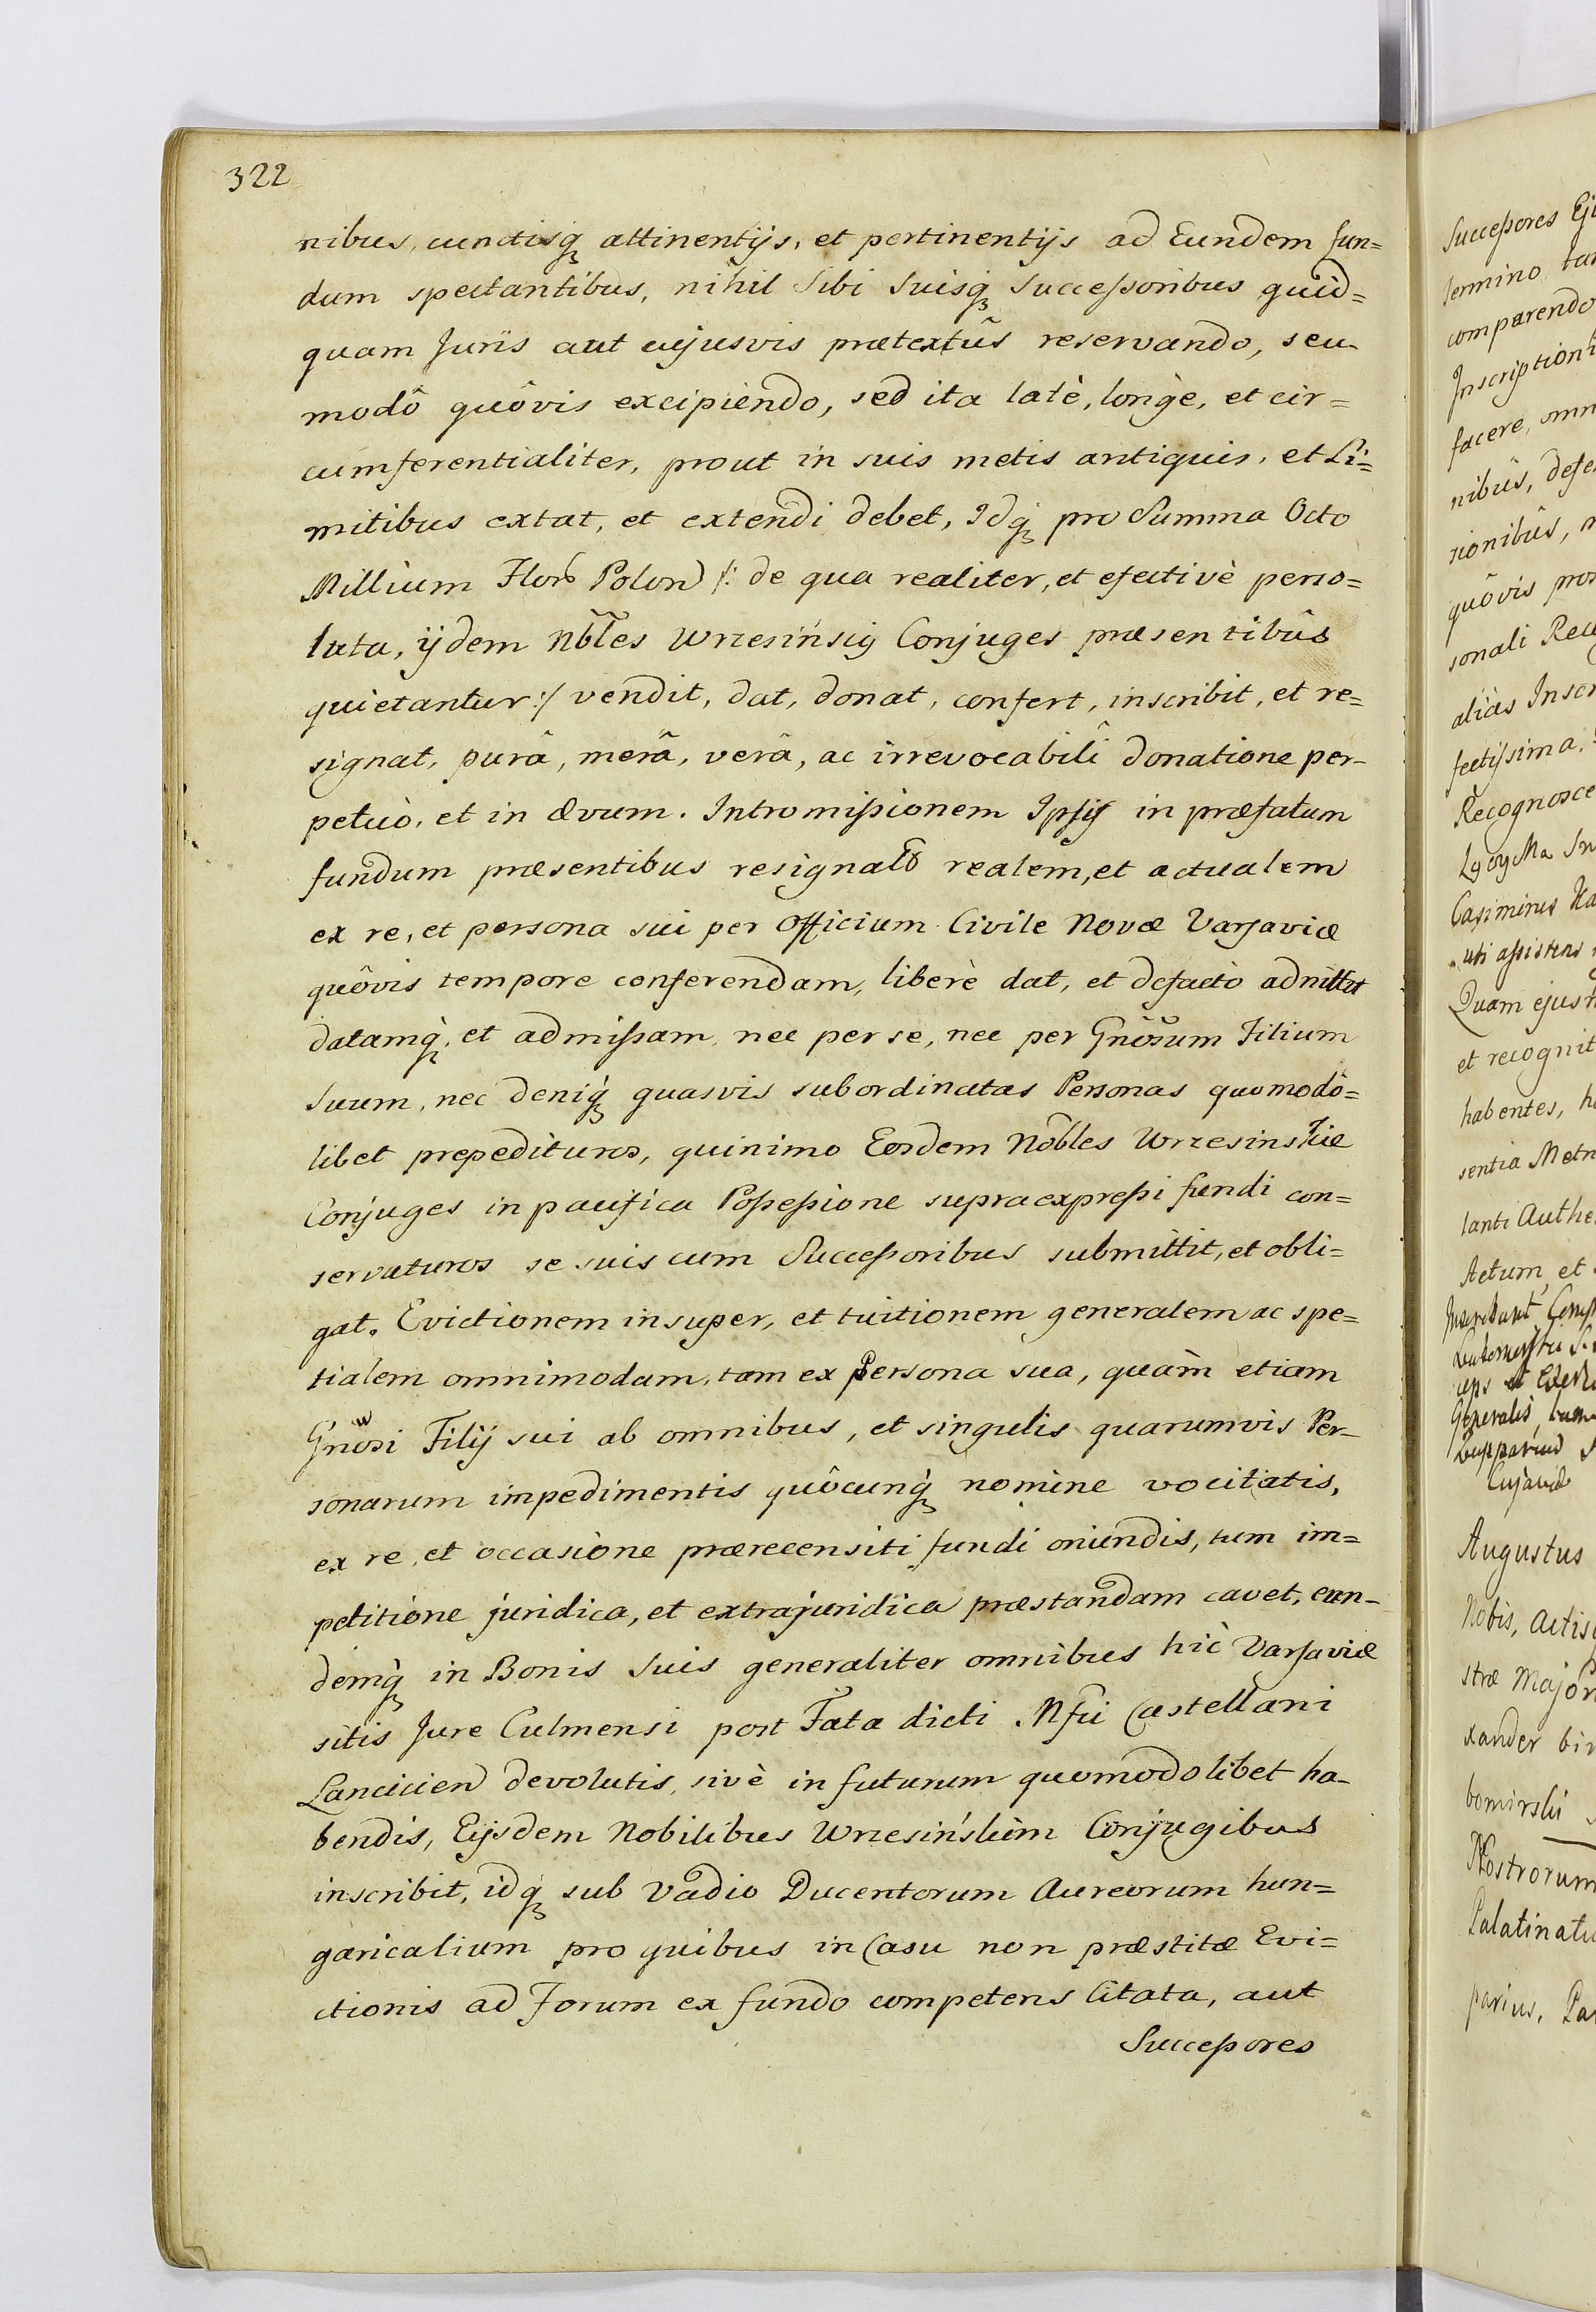 322
nibus, cunctisq́ꝫ attinentijs, et pertinentijs ad Eundem fun=
dum spectantibus, nihil Sibi Suisq́ꝫ Successoribus quid=
quam Juris aut cujusvis prætextûs reservando, seu
modô quôvis excipièndo, sed ita latè, longè, et cir=
cumferentialiter, prout in suis metis antiquis, et Li=
mitibus extat, et extendi debet, Idq́ꝫ pro Summa Octo
Millium Flor Polon /: de qua realiter, et efectivè perso=
luta, ijdem Nbles Wrzesińsij Conjuges præsentibûs
quietantur :/ vendit, dat, donat, confert, inscribit, et re=
signat, purâ, merâ, verâ, ac irrevocabilî donatione per-
petuò, et in ævum. Intromissionem Ipsis in præfatum
fundum præsentibus resignatũ realem, et actualem
ex re, et persona sui per Officium Civile Novæ Varsaviæ
quôvis tempore conferendam, liberè dat, et defactò admittit
datamq̀ꝫ, et admissam, nec per se, nec per Gnosum Filium
Suum, nec deniq́ꝫ quasvis subordinatas Personas quomodò=
libet prepedituros, quinimo Eosdem Nobles Wrzesinskie
Conjuges in paucifica Possessione supraexpressi fundi con=
servaturos se suis cum Successoribus submittit, et obli=
gat. Evictionem insuper, et tuitionem generalem ac spe=
tialem omnimodam, tam ex Persona sua, quàm etiam
Gnosi Filij sui ab omnibus, et singulis quarumvis Per-
sonarum impedimentis quôcunq̀ꝫ nomine vocitatis,
ex re, et occasione prærecensiti fundi oriundis, tum im=
petitione juridica, et extrajuridica præstandam cavet, eun-
demq̀ꝫ in Bonis Suis generaliter omnibus hìc Varsaviæ
sitis Jure Culmensi post Fata dicti Mfci Castellani
Lancicien devolutis, sivè in futurum quomodolibet ha-
bendis, Eijsdem Nobilibus Wrzesińskim Conjugibus
inscribit, idq́ꝫ sub Vadio Ducentorum Aureorum hun=
garicalium pro quibus in Casu non præstitæ Evi=
ctionis ad Forum ex fundo competens Citata, aut
Successores
Successores
termino
comparendo
facere, omn
nibûs, defe
sionibûs,
quôvis
sonali
aliàs
fectissima,
Recognosce
Casimirus
uti assistens
Quam
et recognit
habentes,
sentia Metr
lanti Authe
Actum, et
Generalis
Cujaviæ
Augustus
Nobis, Actis
stræ Major
xander
bomirski
Nostrorum
Palatinatu
parius, Pa